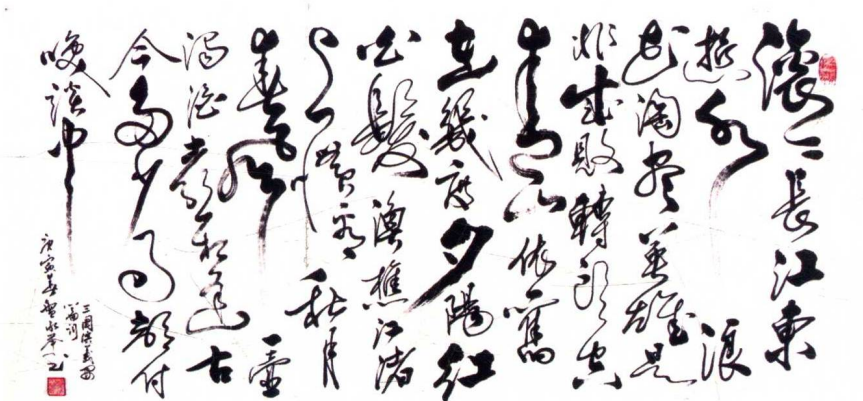 滾滾長江東
逝水浪
花淘盡英雄是
非成敗轉頭空
青山依舊
在幾度夕陽紅
白髮漁樵江渚
上慣看秋月
春風一壺
濁酒喜相逢古
今多少事都付
咲談中
三國演義開
篇詞
庚寅春